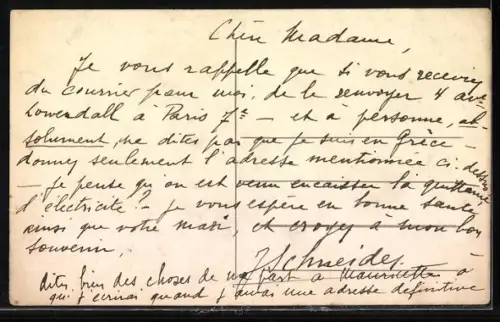 Chère Madame,
Je vous rappelle que si vous receviez
du courrier pour moi, de le renvoyer 4 ave
Lowendall à Paris 7e – et à personne, ab-
solument, ne dites pas que je suis en Grèce –
donnez seulement l'adresse mentionnée ci-dessus
– Je pense qu'on est venu encaisser la quittance
d'électricité? – Je vous espère en bonne santé
ainsi que votre mari, et croyez à mon bon
souvenir,
J Schneider
dites bien des choses de ma part à Mauricette à
qui j'écrirai quand j'aurai une adresse définitive